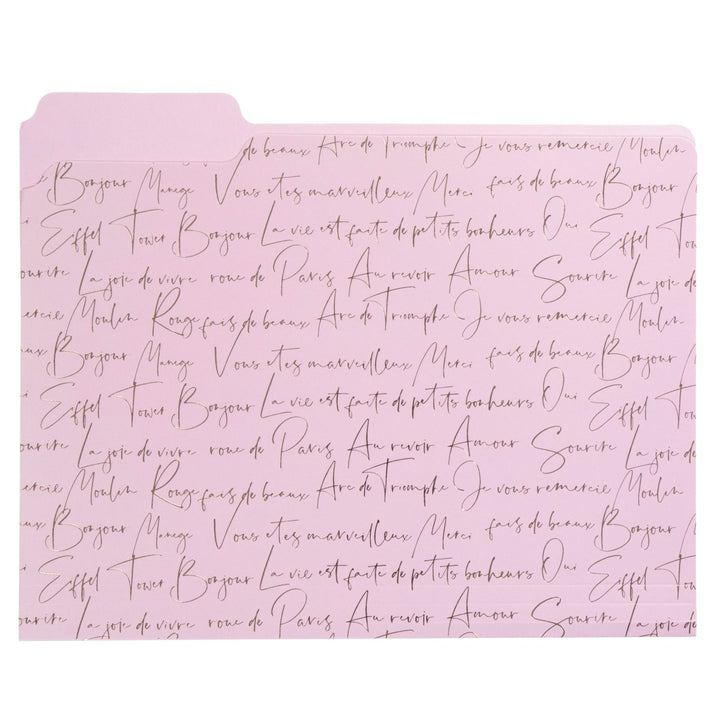 de beaux Arc de Triomphe Je vous remercie Moulin
Bonjour Manege Vous etes marveilleux Merci fais de beaux Bonjour
Eiffel Tower Bonjour La vie est faite de petits bonheurs Oui Eiffel Tower
ourire La joie de vivre roue de Paris Au revoir Amour Sourire La joie de
mercie Moulin Rouge fais de beaux Arc de Triomphe Je vous remercie Moulin
ux Bonjour Manege Vous etes marveilleux Merci fais de beaux Bonjour
Eiffel Tower Bonjour La vie est faite de petits bonheurs Oui Eiffel Tower
ourire La joie de vivre roue de Paris Au revoir Amour Sourire La joie de
mercie Moulin Rouge fais de beaux Arc de Triomphe Je vous remercie Moulin
aux Bonjour Manege Vous etes marveilleux Merci fais de beaux Bonjour
Eiffel Tower Bonjour La vie est faite de petits bonheurs Oui Eiffel Tower
ourire La joie de vivre roue de Paris Au revoir Amour Sourire La joie de